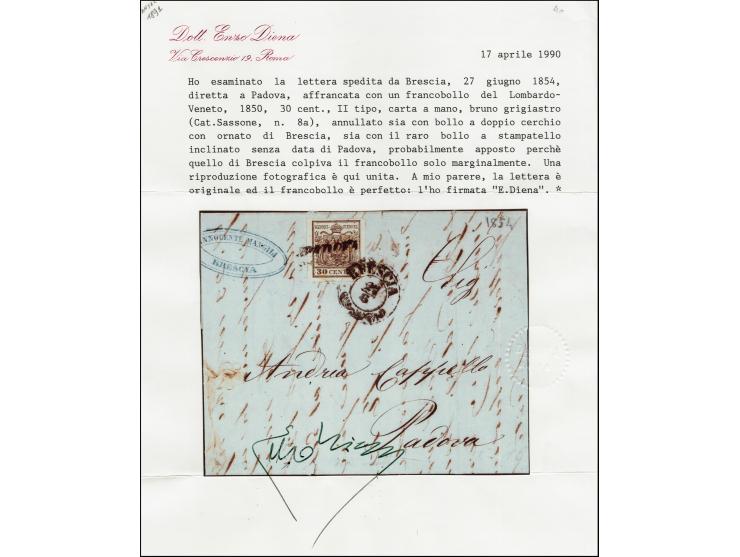 1892
Dott. Enzo Diena
Via Crescenzio 19, Roma
17 aprile 1990
Ho esaminato la lettera spedita da Brescia, 27 giugno 1854,
diretta a Padova, affrancata con un francobollo del Lombardo-
Veneto, 1850, 30 cent., II tipo, carta a mano, bruno grigiastro
(Cat.Sassone, n. 8a), annullato sia con bollo a doppio cerchio
con ornato di Brescia, sia con il raro bollo a stampatello
inclinato senza data di Padova, probabilmente apposto perchè
quello di Brescia colpiva il francobollo solo marginalmente. Una
riproduzione fotografica è qui unita. A mio parere, la lettera è
originale ed il francobollo è perfetto: l'ho firmata "E.Diena". *
1854
INNOCENTE MANGILI
BRESCIA
30 CENT
BRESCIA
Andrea Cappello
Padova